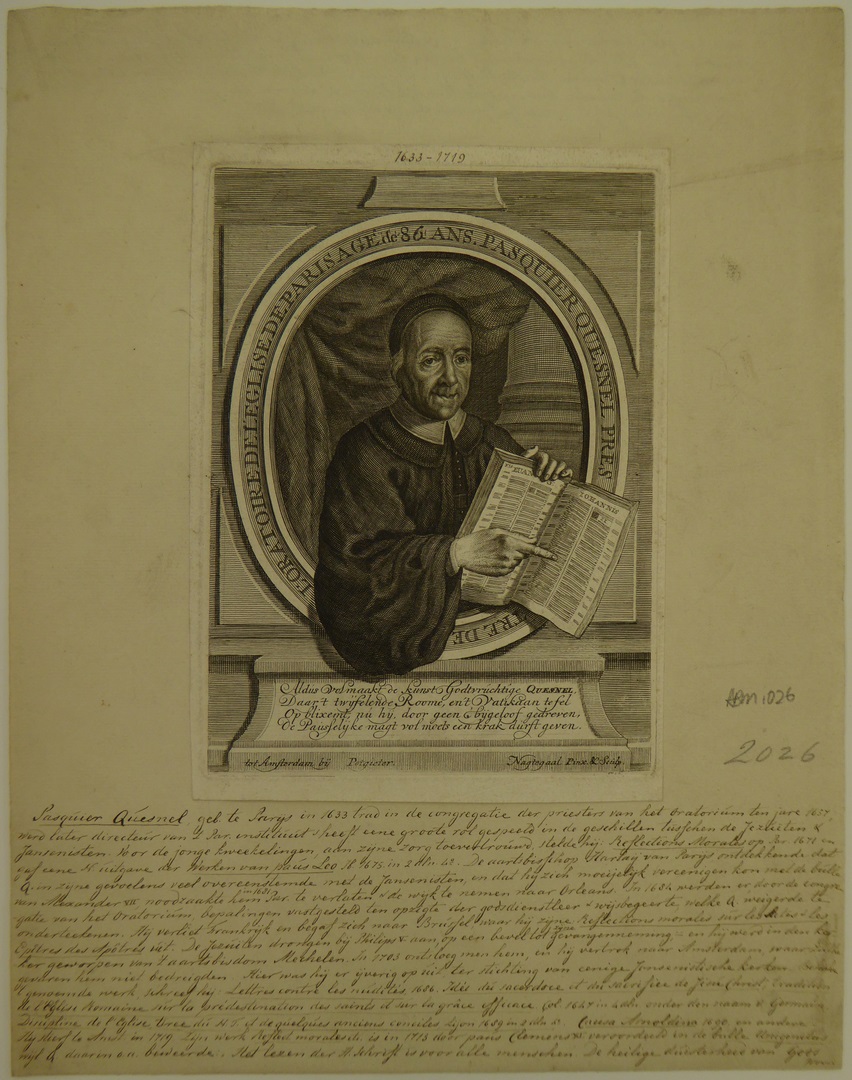 1633-1719
PASQUIER QUESNEL PRES TRE DE L'ORATOIRE DE L'EGLISE DE PARIS AGÉ de 86 ANS.
EUAN
IOHANNIS
Aldus vermaakt de kunst Godtvruchtige QUESNEL,
Daar 't twyfelende Roome, en 't Vatikaan te fel
Op blixemt, nu hij, door geen bygeloof gedreven,
De Pausselyke magt vol moets een krak durft geven.
tot Amsterdam bij Potgieter. Nagtegaal Pinx. & Sculp.
2026
2026
Pasquier Quesnel, geb te Parys in 1633 trad in de congregatie der priesters van het Oratorium ten jare 1657,
werd later directeur van 't Par. instituut & heeft eene groote rol gespeeld in de geschillen tusschen de Jezuiten &
Jansenisten. Voor de jonge kweekelingen, aan zijne zorg toevertrouwd, stelde hij: Reflections Morales op. Par. 1671 en
gaf eene uitgave der Werken van paus Leo 1675 in 2 dln 4o. De aartsbisschop Harlay van Parys ontdekkende dat
Q. in zijne gevoelens veel overeenstemde met de Jansenisten, en dat hij zich moeijelijk vereenigen kon met de bulle
van Alexander VII noodzaakte hem Par. te verlaten & de wijk te nemen naar Orleans. In 1684 werden er door de congre
gatie van het Oratorium bepalingen vastgesteld ten opzigte der godsdienstleer & wijsbegeerte, welke Q. weigerde te
onderteekenen. Hij verliet Frankrijk en begaf zich naar Brussel waar hij zijne Reflections morales sur les Actes & les
Epitres des Apôtres uit. De Jezuiten drongen bij Philips V aan op een bevel tot zijne gevangenneming & en hij werd in den ker
ker geworpen van 't aartsbisdom Mechelen. In 1703 ontsloeg men hem, en hij vertrok naar Amsterdam, waar
gevaren hem niet bedreigden. Hier was hij er yverig op uit ter stichting van eenige Jansenistische kerken.
genoemde werk schreef hij: Lettres contre les nudités 1686. Idée du sacerdoce et du sacrifice de Jesus Christ,
de l'Eglise Romaine sur la prédestination des saints et sur la grâce efficace Col. 1687 in 4 dln. onder den naam v. Germain
Discipline de l'Eglise tirée du N.T. et de quelques anciens conciles Lyon 1689 in 2 dln 4o. Causa Arnoldina 1690 en andere
Hij stierf te Amst. in 1719. Zijn werk Reflect morales etc is in 1713 door paus Clemens XI veroordeeld in de bulle Unigenitus
wijl Q. daarin o.a. beweerde. Het lezen der H. Schrift is voor alle menschen. De heilige duisterheid van Gods